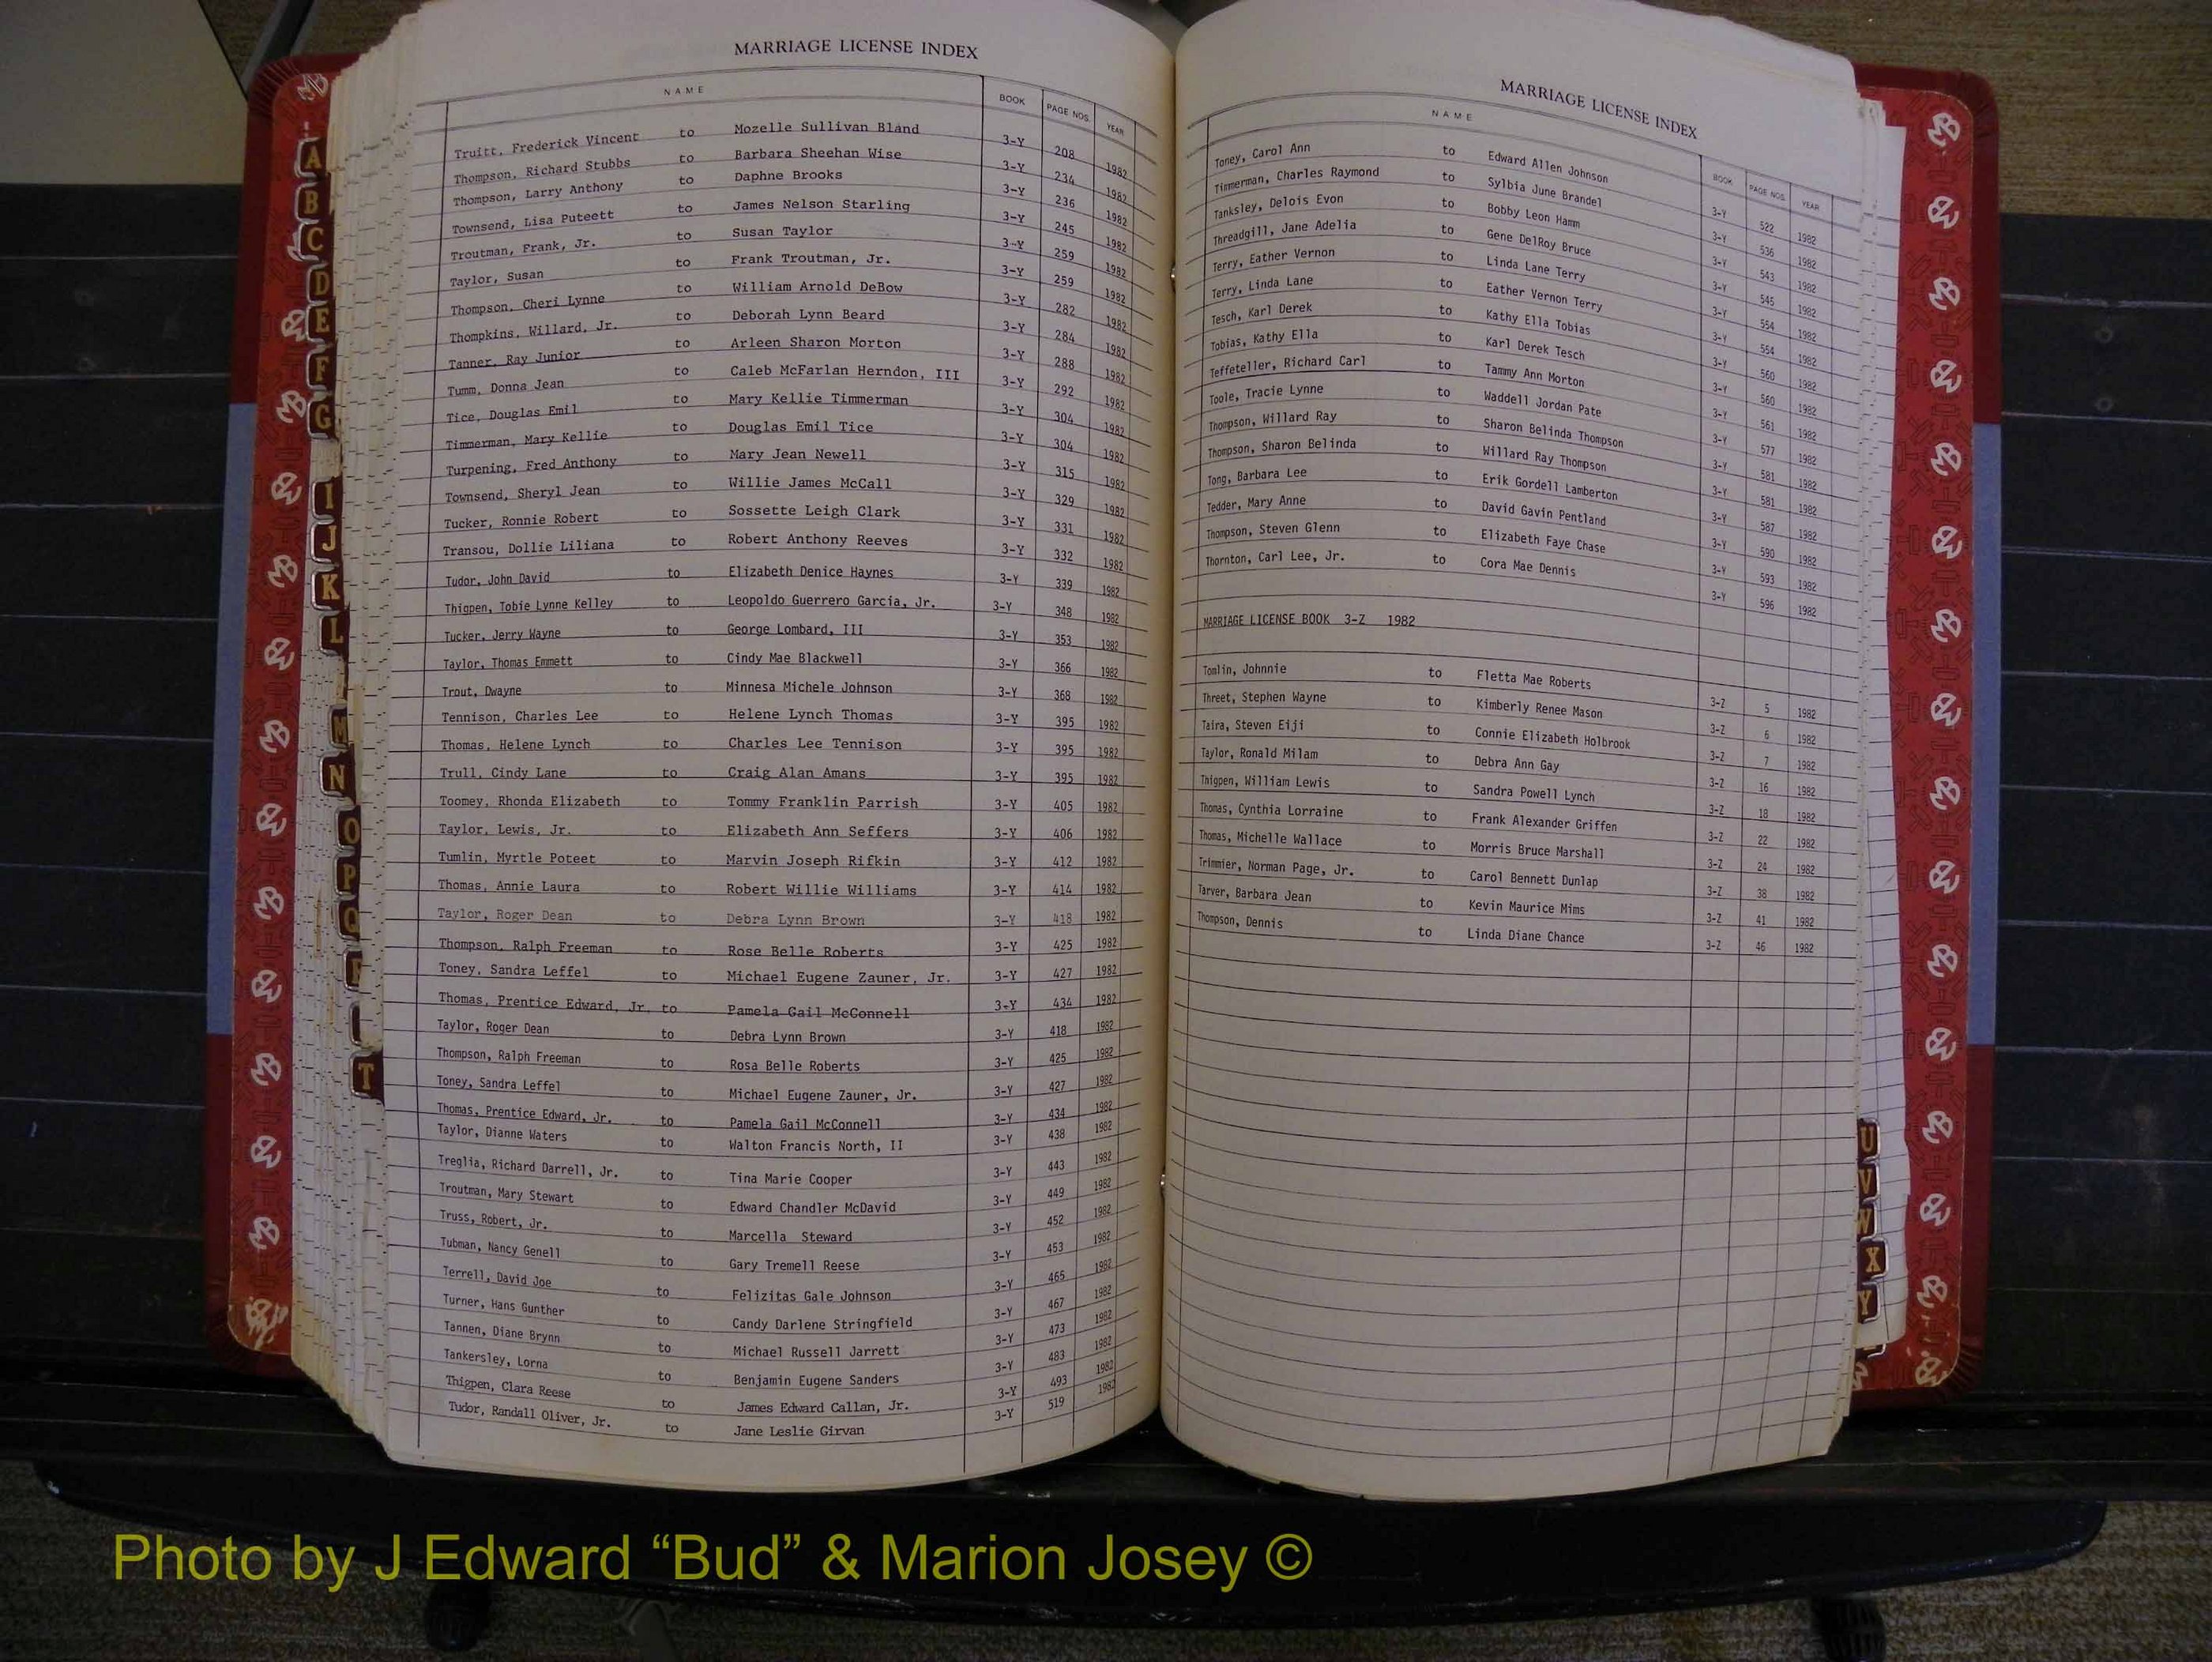 MARRIAGE LICENSE INDEX
NAME BOOK PAGE NOS. YEAR
Truitt, Frederick Vincent to Mozelle Sullivan Bland 3-Y 208 1982
Thompson, Richard Stubbs to Barbara Sheehan Wise 3-Y 234 1982
Thompson, Larry Anthony to Daphne Brooks 3-Y 236 1982
Townsend, Lisa Puteett to James Nelson Starling 3-Y 245 1982
Troutman, Frank, Jr. to Susan Taylor 3-Y 259 1982
Taylor, Susan to Frank Troutman, Jr. 3-Y 259 1982
Thompson, Cheri Lynne to William Arnold DeBow 3-Y 282 1982
Thompkins, Willard, Jr. to Deborah Lynn Beard 3-Y 284 1982
Tanner, Ray Junior to Arleen Sharon Morton 3-Y 288 1982
Tumm, Donna Jean to Caleb McFarlan Herndon, III 3-Y 292 1982
Tice, Douglas Emil to Mary Kellie Timmerman 3-Y 304 1982
Timmerman, Mary Kellie to Douglas Emil Tice 3-Y 304 1982
Turpening, Fred Anthony to Mary Jean Newell 3-Y 315 1982
Townsend, Sheryl Jean to Willie James McCall 3-Y 329 1982
Tucker, Ronnie Robert to Sossette Leigh Clark 3-Y 331 1982
Transou, Dollie Liliana to Robert Anthony Reeves 3-Y 332 1982
Tudor, John David to Elizabeth Denice Haynes 3-Y 339 1982
Thigpen, Tobie Lynne Kelley to Leopoldo Guerrero Garcia, Jr. 3-Y 348 1982
Tucker, Jerry Wayne to George Lombard, III 3-Y 353 1982
Taylor, Thomas Emmett to Cindy Mae Blackwell 3-Y 366 1982
Trout, Dwayne to Minnesa Michele Johnson 3-Y 368 1982
Tennison, Charles Lee to Helene Lynch Thomas 3-Y 395 1982
Thomas, Helene Lynch to Charles Lee Tennison 3-Y 395 1982
Trull, Cindy Lane to Craig Alan Amans 3-Y 395 1982
Toomey, Rhonda Elizabeth to Tommy Franklin Parrish 3-Y 405 1982
Taylor, Lewis, Jr. to Elizabeth Ann Seffers 3-Y 406 1982
Tumlin, Myrtle Poteet to Marvin Joseph Rifkin 3-Y 412 1982
Thomas, Annie Laura to Robert Willie Williams 3-Y 414 1982
Taylor, Roger Dean to Debra Lynn Brown 3-Y 418 1982
Thompson, Ralph Freeman to Rose Belle Roberts 3-Y 425 1982
Toney, Sandra Leffel to Michael Eugene Zauner, Jr. 3-Y 427 1982
Thomas, Prentice Edward, Jr. to Pamela Gail McConnell 3-Y 434 1982
Taylor, Roger Dean to Debra Lynn Brown 3-Y 418 1982
Thompson, Ralph Freeman to Rosa Belle Roberts 3-Y 425 1982
Toney, Sandra Leffel to Michael Eugene Zauner, Jr. 3-Y 427 1982
Thomas, Prentice Edward, Jr. to Pamela Gail McConnell 3-Y 434 1982
Taylor, Dianne Waters to Walton Francis North, II 3-Y 438 1982
Treglia, Richard Darrell, Jr. to Tina Marie Cooper 3-Y 443 1982
Troutman, Mary Stewart to Edward Chandler McDavid 3-Y 449 1982
Truss, Robert, Jr. to Marcella Steward 3-Y 452 1982
Tubman, Nancy Genell to Gary Tremell Reese 3-Y 453 1982
Terrell, David Joe to Felizitas Gale Johnson 3-Y 465 1982
Turner, Hans Gunther to Candy Darlene Stringfield 3-Y 467 1982
Tannen, Diane Brynn to Michael Russell Jarrett 3-Y 473 1982
Tankersley, Lorna to Benjamin Eugene Sanders 3-Y 483 1982
Thigpen, Clara Reese to James Edward Callan, Jr. 3-Y 493 1982
Tudor, Randall Oliver, Jr. to Jane Leslie Girvan 3-Y 519 1982
MARRIAGE LICENSE INDEX
NAME BOOK PAGE NOS. YEAR
Toney, Carol Ann to Edward Allen Johnson 3-Y 522 1982
Timmerman, Charles Raymond to Sylbia June Brandel 3-Y 536 1982
Tanksley, Delois Evon to Bobby Leon Hamm 3-Y 543 1982
Threadgill, Jane Adelia to Gene DelRoy Bruce 3-Y 545 1982
Terry, Eather Vernon to Linda Lane Terry 3-Y 554 1982
Terry, Linda Lane to Eather Vernon Terry 3-Y 554 1982
Tesch, Karl Derek to Kathy Ella Tobias 3-Y 560 1982
Tobias, Kathy Ella to Karl Derek Tesch 3-Y 560 1982
Teffeteller, Richard Carl to Tammy Ann Morton 3-Y 561 1982
Toole, Tracie Lynne to Waddell Jordan Pate 3-Y 577 1982
Thompson, Willard Ray to Sharon Belinda Thompson 3-Y 581 1982
Thompson, Sharon Belinda to Willard Ray Thompson 3-Y 581 1982
Tong, Barbara Lee to Erik Gordell Lamberton 3-Y 587 1982
Tedder, Mary Anne to David Gavin Pentland 3-Y 590 1982
Thompson, Steven Glenn to Elizabeth Faye Chase 3-Y 593 1982
Thornton, Carl Lee, Jr. to Cora Mae Dennis 3-Y 596 1982
MARRIAGE LICENSE BOOK 3-Z 1982
Tomlin, Johnnie to Fletta Mae Roberts 3-Z 5 1982
Threet, Stephen Wayne to Kimberly Renee Mason 3-Z 6 1982
Taira, Steven Eiji to Connie Elizabeth Holbrook 3-Z 7 1982
Taylor, Ronald Milam to Debra Ann Gay 3-Z 16 1982
Thigpen, William Lewis to Sandra Powell Lynch 3-Z 18 1982
Thomas, Cynthia Lorraine to Frank Alexander Griffen 3-Z 22 1982
Thomas, Michelle Wallace to Morris Bruce Marshall 3-Z 24 1982
Trimmier, Norman Page, Jr. to Carol Bennett Dunlap 3-Z 38 1982
Tarver, Barbara Jean to Kevin Maurice Mims 3-Z 41 1982
Thompson, Dennis to Linda Diane Chance 3-Z 46 1982
A
B
C
D
E
F
G
I
J
K
L
M
N
O
P
Q
T
U
V
W
X
Y
Photo by J Edward “Bud” & Marion Josey ©